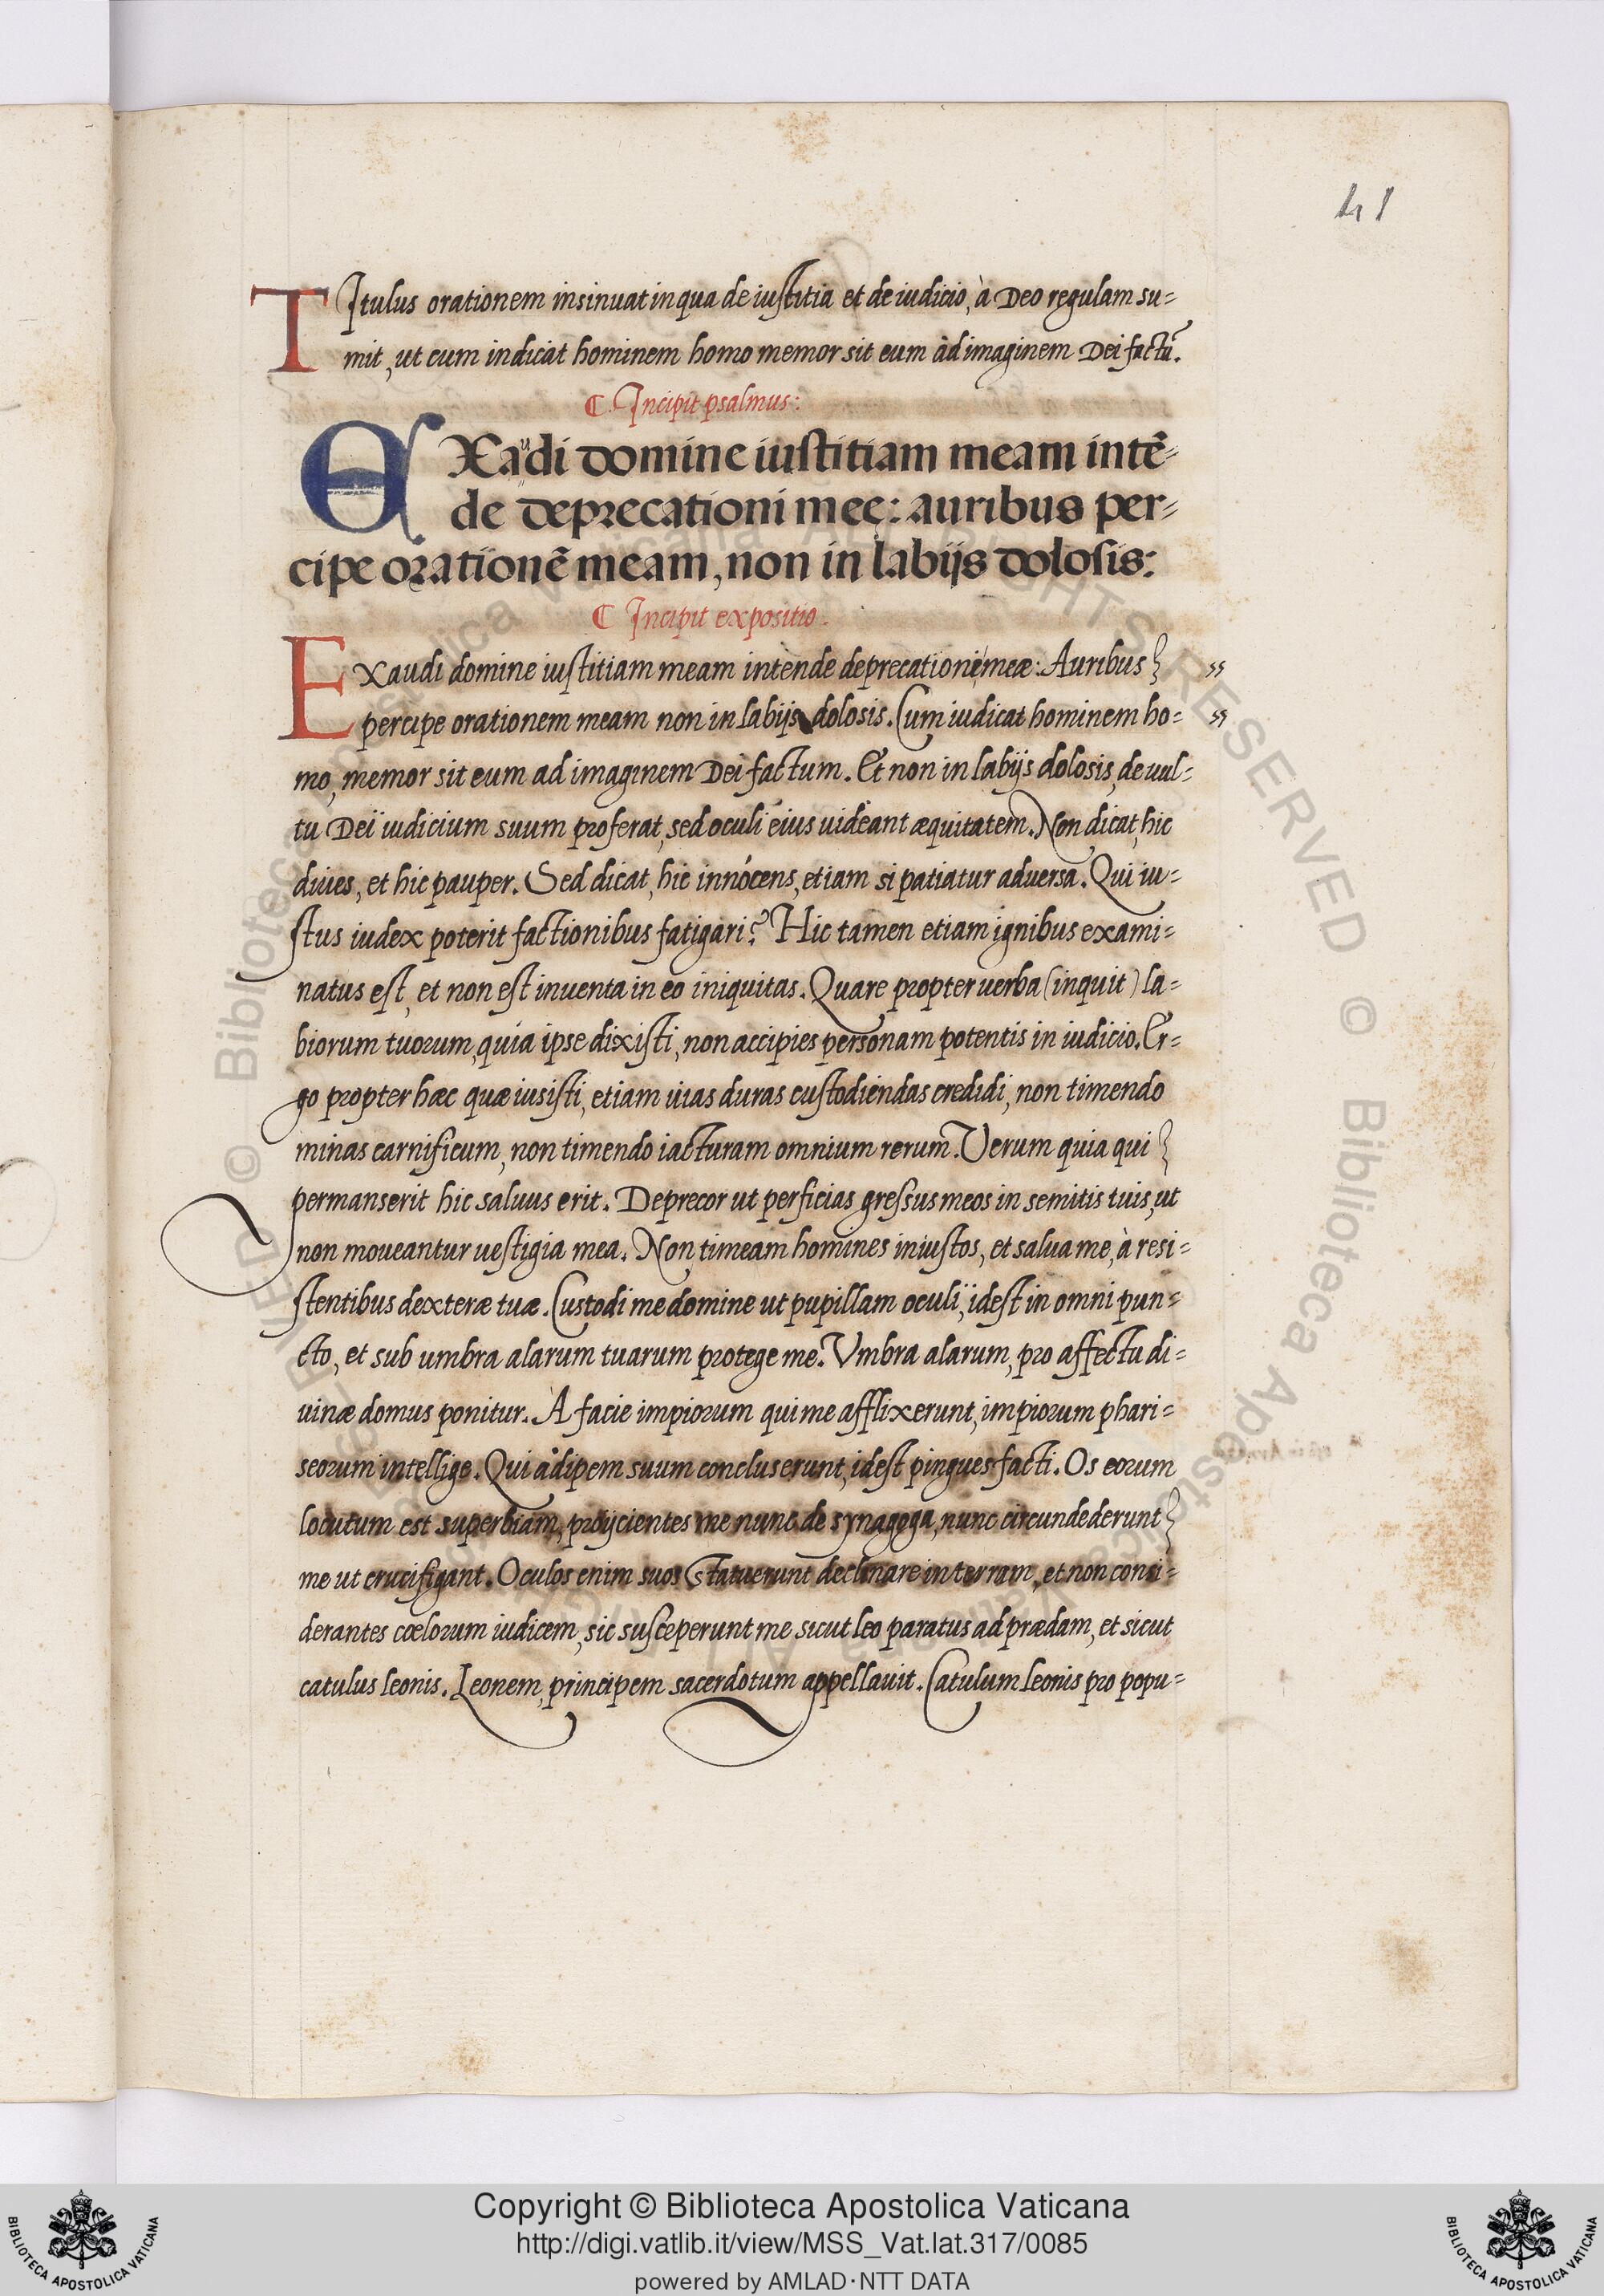 41
TItulus orationem insinuat in qua de iustitia et de iudicio, à Deo regulam su=
mit, ut cum indicat hominem homo memor sit eum ad imaginem Dei factū.
C. Incipit psalmus:
EXaudi domine iustitiam meam intē=
de deprecationi meę: auribus per=
cipe orationē meam, non in labijs dolosis:
C Incipit expositio.
EXaudi domine iustitiam meam intende deprecationi meæ: Auribus
percipe orationem meam non in labijs dolosis. Cum iudicat hominem ho=
mo, memor sit eum ad imaginem Dei factum. Et non in labijs dolosis, de uul=
tu Dei iudicium suum proferat, sed oculi eius uideant æquitatem. Non dicat, hic
diues, et hic pauper. Sed dicat, hic innocens, etiam si patiatur aduersa. Qui iu=
stus iudex poterit factionibus fatigari? Hic tamen etiam ignibus exami=
natus est, et non est inuenta in eo iniquitas. Quare propter uerba (inquit) la=
biorum tuorum, quia ipse dixisti, non accipies personam potentis in iudicio. Er=
go propter hæc quæ iusisti, etiam uias duras custodiendas credidi, non timendo
minas carnificum, non timendo iacturam omnium rerum. Verum quia qui
permanserit hic saluus erit. Deprecor ut perficias gressus meos in semitis tuis, ut
non moueantur uestigia mea. Non timeam homines iniustos, et salua me, à resi=
stentibus dexteræ tuæ. Custodi me domine ut pupillam oculi, idest in omni pun=
cto, et sub umbra alarum tuarum protege me. Vmbra alarum, pro affectu di=
uinæ domus ponitur. A facie impiorum qui me afflixerunt, impiorum phari=
seorum intellige. Qui adipem suum concluserunt, idest pingues facti. Os eorum
locutum est superbiam, proijcientes me nunc de synagoga, nunc circundederunt
me ut crucifigant. Oculos enim suos statuerunt declinare in terram, et non consi=
derantes cœlorum iudicem, sic susceperunt me sicut leo paratus ad prædam, et sicut
catulus leonis. Leonem, principem sacerdotum appellauit. Catulum leonis pro popu=
Copyright © Biblioteca Apostolica Vaticana
http://digi.vatlib.it/view/MSS_Vat.lat.317/0085
powered by AMLAD·NTT DATA
BIBLIOTECA APOSTOLICA VATICANA
BIBLIOTECA APOSTOLICA VATICANA